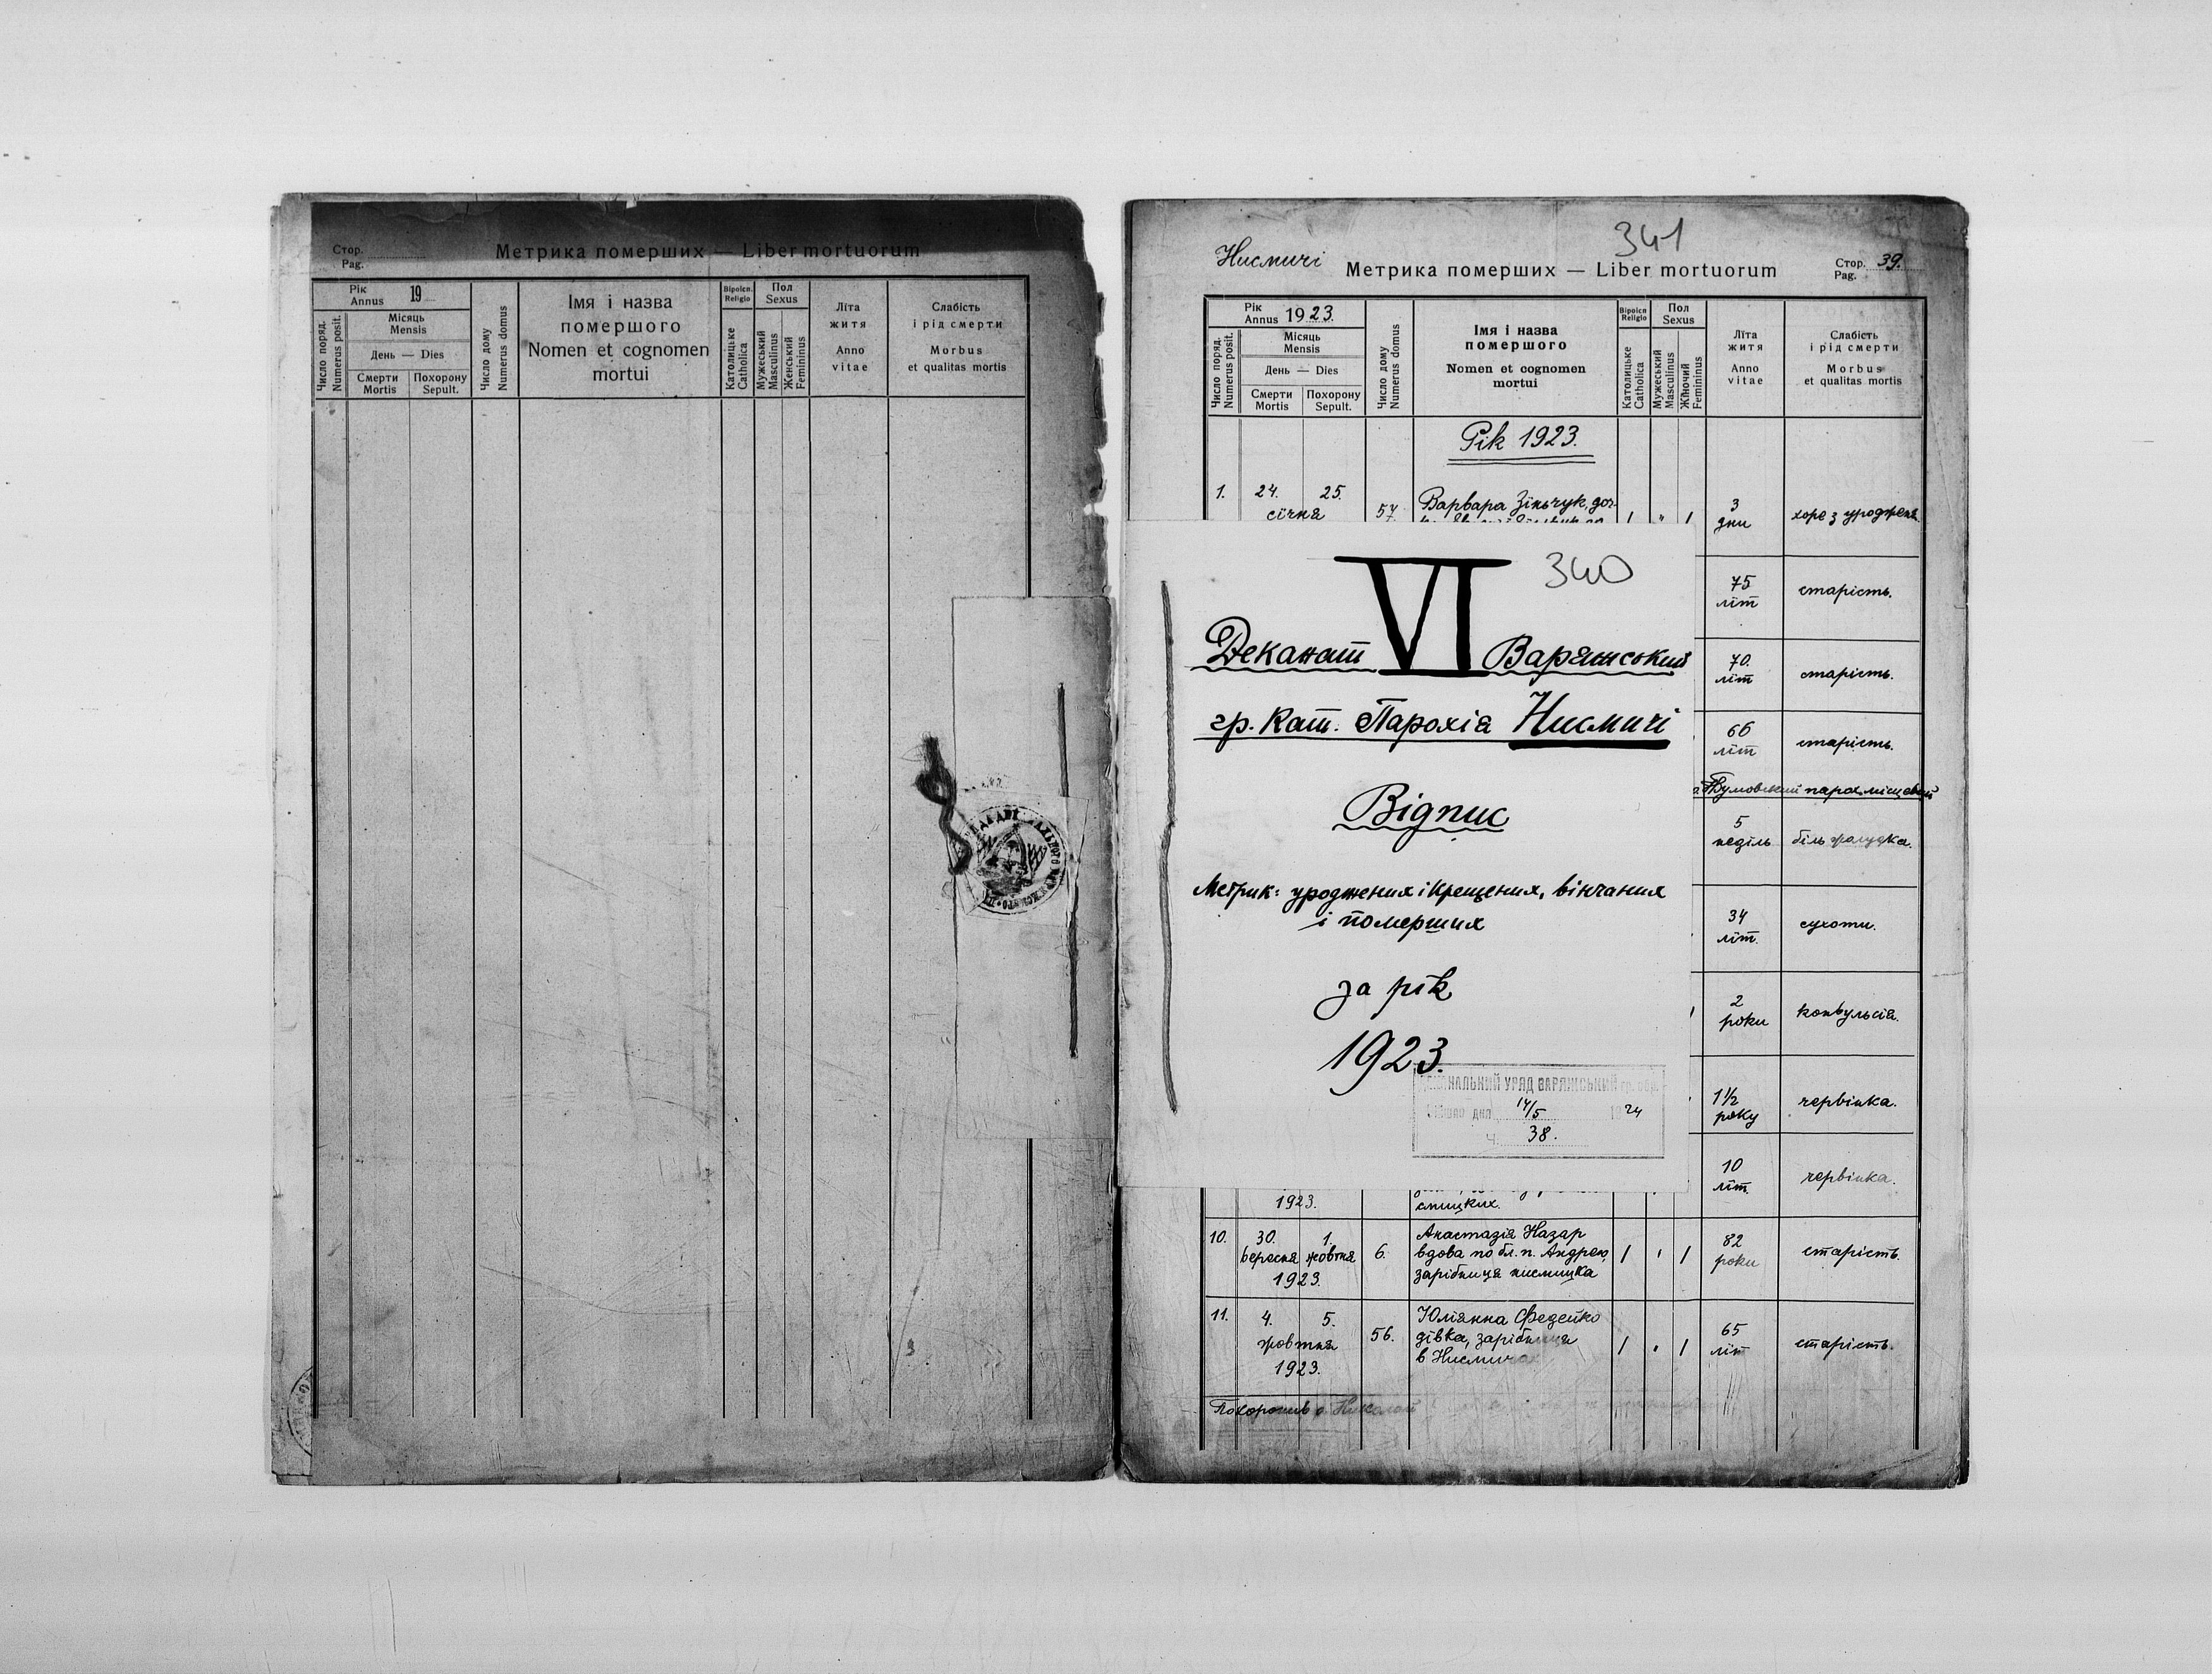 Стор.
Pag.
Метрика померших — Liber mortuorum
Рік
Annus 19
Число поряд.
Numerus posit.
Місяць
Mensis
День — Dies
Смерти
Mortis
Похорону
Sepult.
Число дому
Numerus domus
Імя і назва
помершого
Nomen et cognomen
mortui
Віроісп.
Religio
Католицьке
Catholica
Пол
Sexus
Мужеський
Masculinus
Женський
Femininus
Літа
житя
Anno
vitae
Слабість
і рід смерти
Morbus
et qualitas mortis
341
Нисмичі
Метрика померших — Liber mortuorum
Стор. 39.
Pag.
Рік
Annus 1923.
Число поряд.
Numerus posit.
Місяць
Mensis
День — Dies
Смерти
Mortis
Похорону
Sepult.
Число дому
Numerus domus
Імя і назва
помершого
Nomen et cognomen
mortui
Віроісп.
Religio
Католицьке
Catholica
Пол
Sexus
Мужеський
Masculinus
Жіночий
Femininus
Літа
житя
Anno
vitae
Слабість
і рід смерти
Morbus
et qualitas mortis
Рік 1923.
1. 24. 25.
січня
57
Варвара Зіньчук, доч.
3
дни
хоре з уродженя
VI
340
Деканат Варяжський
гр. Кат. Парохія Нисмичі
Відпис
Метрик: уродження і Крещения, вінчания
і померших
за рік
1923.
УРЯД ВАРЯЖСЬКИЙ
дня 14/5 1924
Ч. 38.
75
літ
старість.
70.
літ
старість.
66
літ
старість.
парох місцевий
5
неділь
біль жолудка.
34
літ.
сухоти.
2
роки
конвульсія.
1½
року
червінка.
10
літ.
червінка.
1923.
10. 30. 1.
вересня жовтня
1923.
6.
Анастазія Назар
вдова по бл. п. Андрею,
зарібниця нисмицка
82
роки
старість.
11. 4. 5.
жовтня
1923.
56.
Юліянна Федейко
дівка, зарібниця
в Нисмичах
65
літ
старість.
Похоронив о. Николай